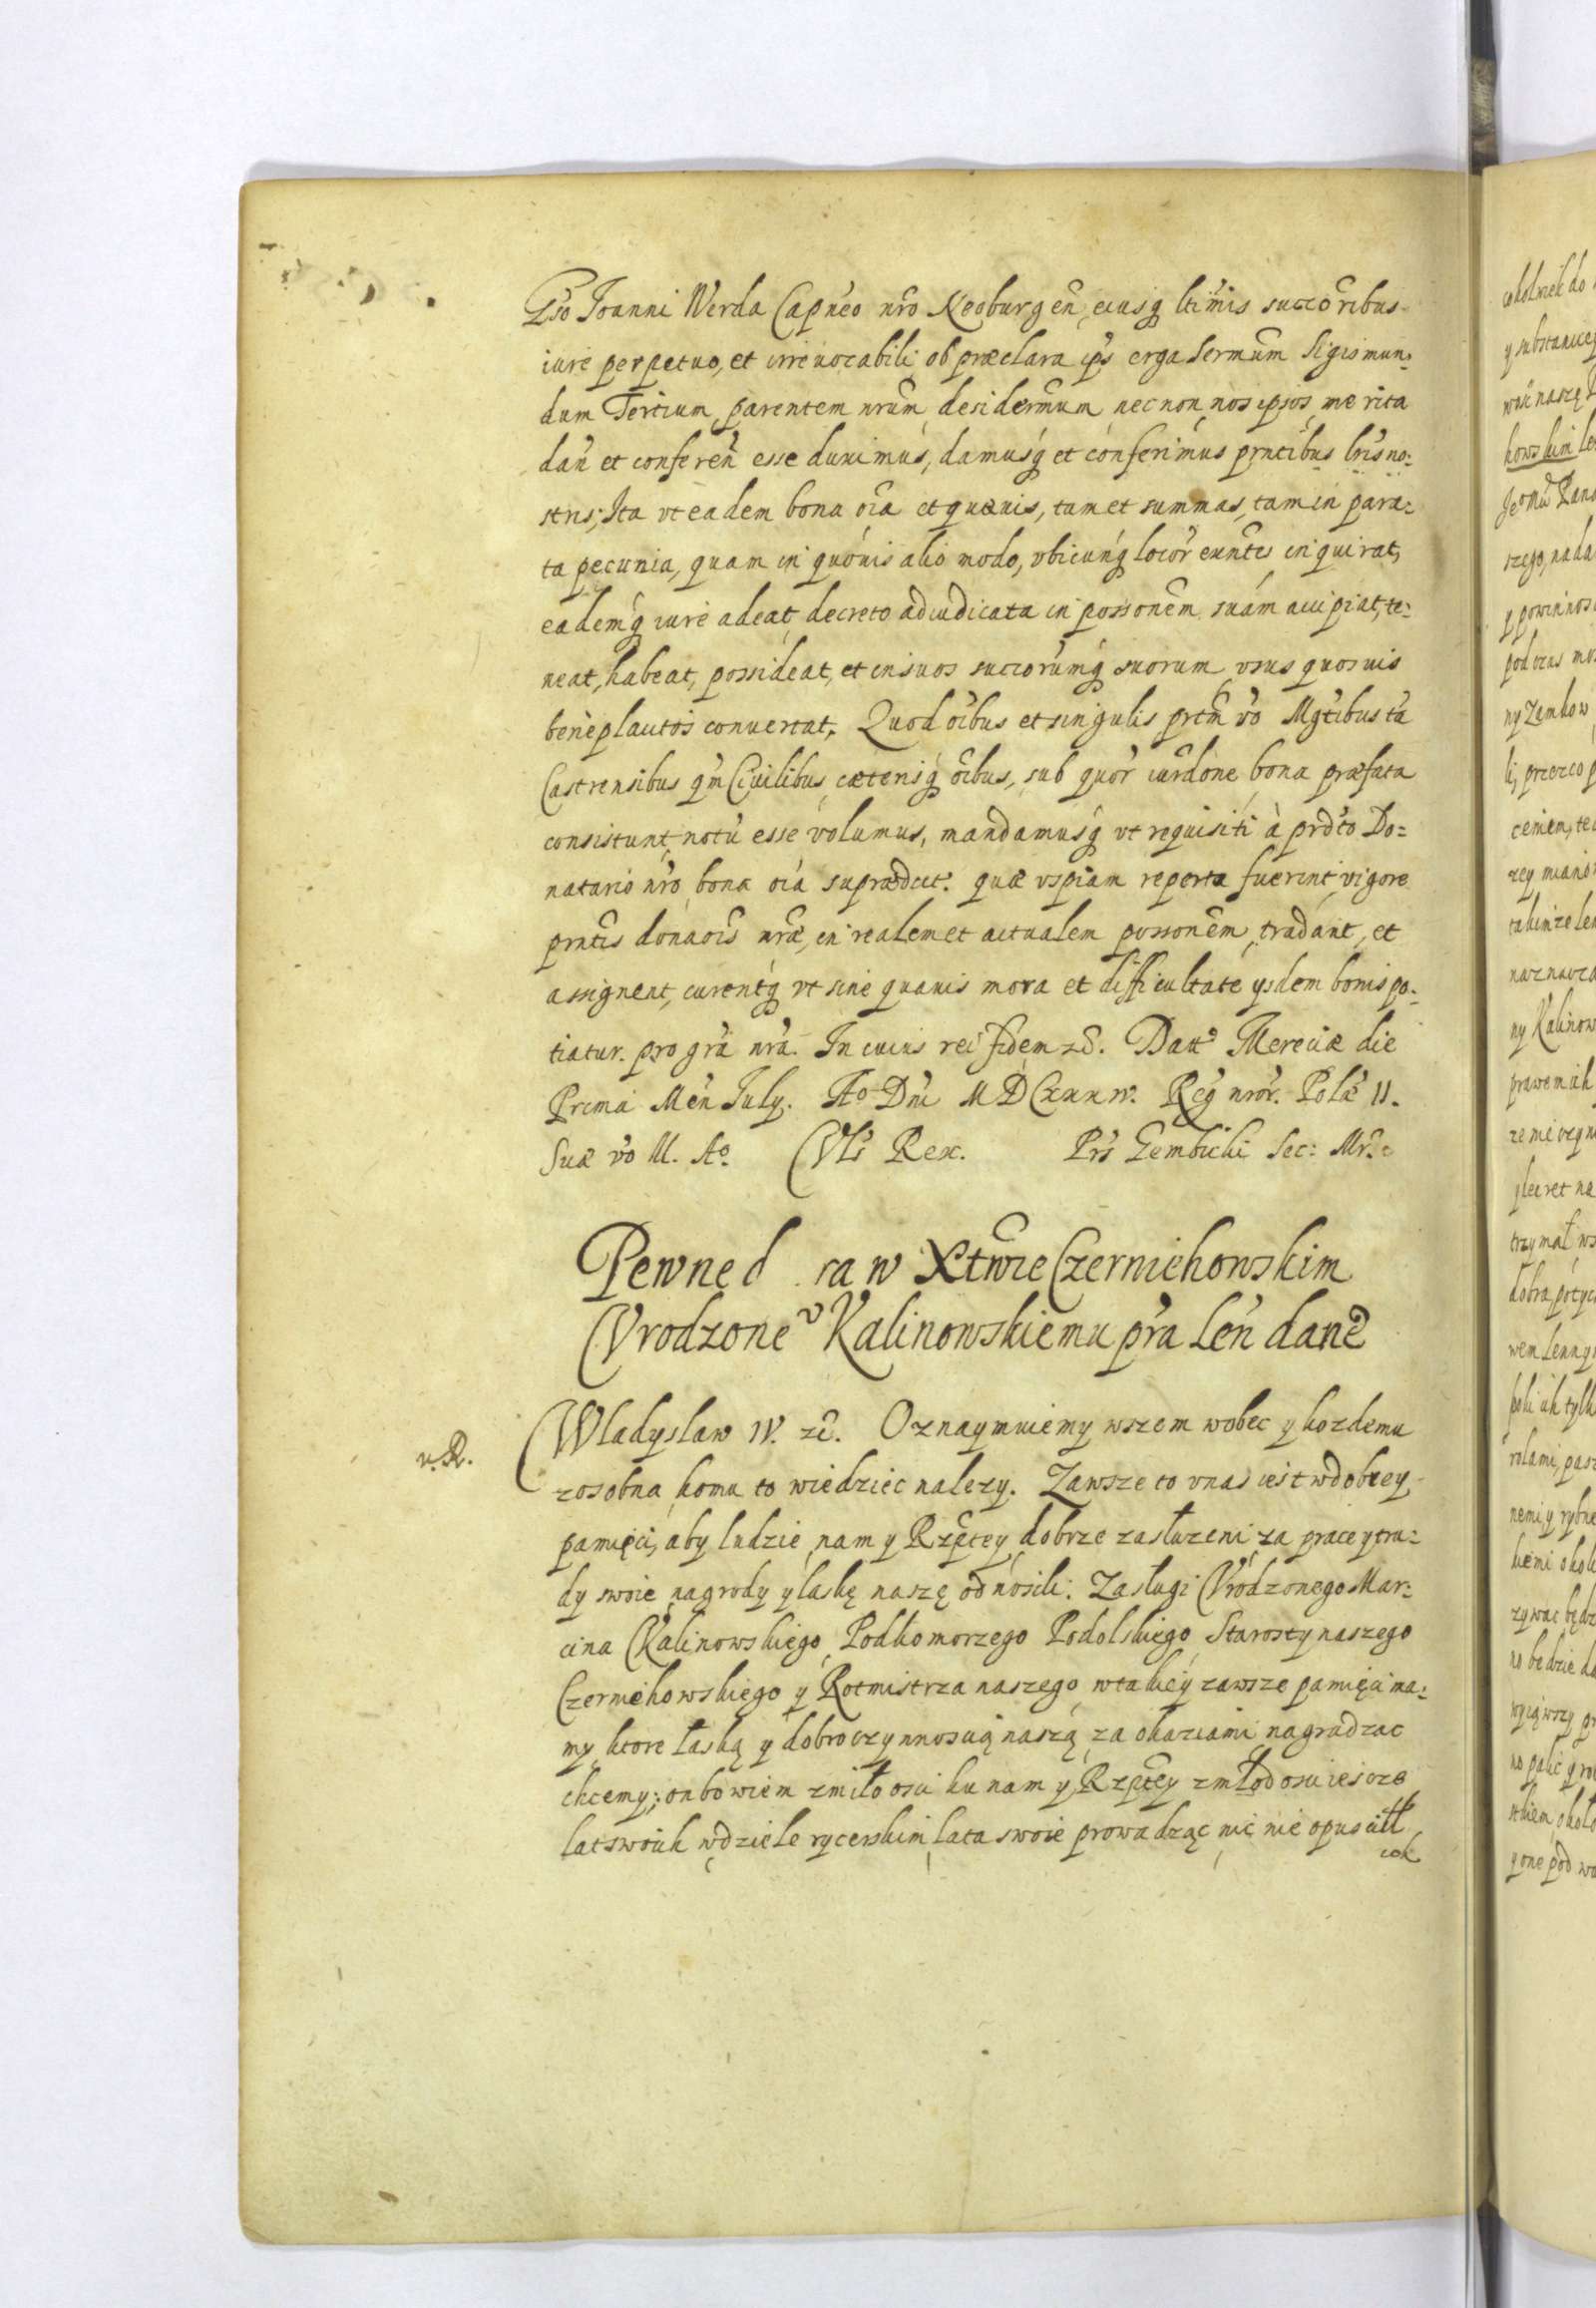 Gso Joanni Werda Capneo nro Neoburgen, eiusq ltimis succoribus
iure perpetuo, et irreuocabili, ob præclara ips erga Sermum Sigismun:
dum Tertium, parentem nrum desidermum, nec non nos ipsos, merita
dan et conferen esse duximus, damusq et conferimus prntibus lris no:
stris; Ita vt eadem bona oia et quæuis, tam et summas, tam in para:
ta pecunia, quam in quouis alio modo, vbicunq locor euntes inquirat,
eademq iure adeat, decreto adiudicata in possonem suam accipiat, te:
neat, habeat, possideat, et in suos succorumq suorum vsus quosuis
beneplacitos conuertat. Quod oibus et singulis prtm vo Mgtibus ta
Castrensibus qm Ciuilibus cæterisq oibus, sub quor iurdone bona præfata
consistunt, notu esse volumus, mandamusq vt requisiti à prdto Do:
natario nro bona oia supradict. quæ vspiam reperta fuerint, vigore
prntis donaois nræ, in realem et actualem possonem tradant, et
assignent, curentq vt sine quauis mora et difficultate ysdem bonis po:
tiatur. pro gra nra. In cuius rei fidem zc. Datt Mereciæ die
Prima Men July. Ao Dni MDCxxxiv. Reg nror. Polæ II.
Suæ vo II. Ao. Vls Rex. Prs Gembicki Sec: Mr.
Pewne d ra w Xtwie Czerniehowskim
Vrodzonev Kalinowskiemu pra Len dane
v. R.
Wladyslaw IV. zc. Oznaymuiemy wszem wobec y kozdemu
zosobna, komu to wiedziec nalezy. Zawsze to v nas iest w dobrey
pamięci, aby ludzie nam y Rzptey dobrze zasłuzeni za prace y tru:
dy swoie nagrody y laskę naszę odnosili: Zasługi Vrodzonego Mar:
cina Kalinowskiego Podkomorzego Podolskiego Starosty naszego
Czerniehowskiego y Rotmistrza naszego w takiey zawsze pamięci ma:
my, ktore łaską y dobroczynnoscią naszą za okaziami nagradzac
chcemy; on bowiem z miłoosci ku nam y Rzptey z młodosci iescze
lat swoich w dziele rycerskim lata swoie prowadząc nic nie opuscił
cok